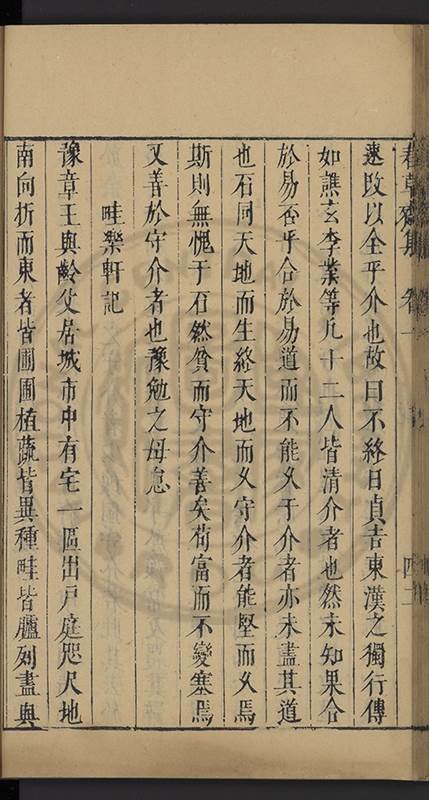 春草齋集 卷一 四十二
速改以全乎介也故曰不終日貞吉東漢之獨行傳
如譙玄李業等凡十二人皆清介者也然未知果合
於易否乎合於易道而不能久于介者亦未盡其道
也石同天地而生終天地而久守介者能堅而久焉
斯則無愧于石然貧而守介善矣苟富而不變塞焉
又善於守介者也豫勉之毋怠
畦樂軒記
豫章王與齡父居城市中有宅一區出戶庭咫尺地
南向折而東者皆圃圃植蔬皆異種畦皆臚列盡與